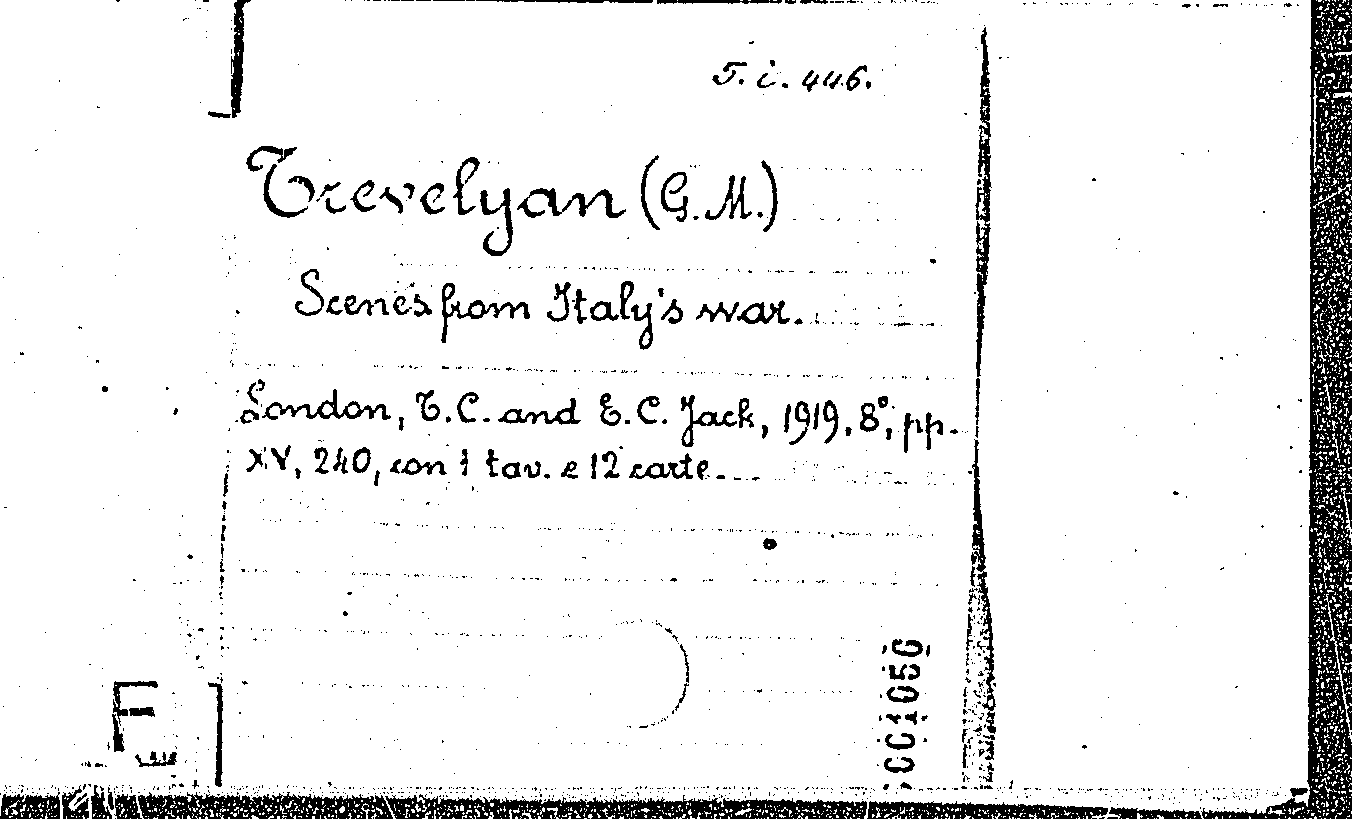 5. i. 446.
Trevelyan (G. M.)
Scenes from Italy's war.
London, T. C. and E. C. Jack, 1919, 8°, pp.
XV, 240, con 1 tav. e 12 carte.
F